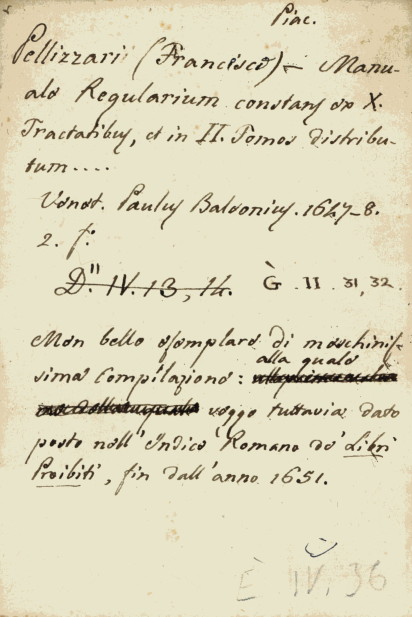 Piac.
Pellizzari (Francesco) – Manu-
ale Regularium constans ex X.
Tractatibus, et in II. Tomos distribu-
tum....
Venet. Paulus Baleonius. 1647-8.
2. f.
D." IV. 13, 14. G̀. II. 31, 32.
Non bello esemplare di meschinis-
sima Compilazione: alla quale
veggo tuttavia dato
posto nell' Indice Romano de' Libri
Proibiti, fin dall' anno 1651.
È IV, 36